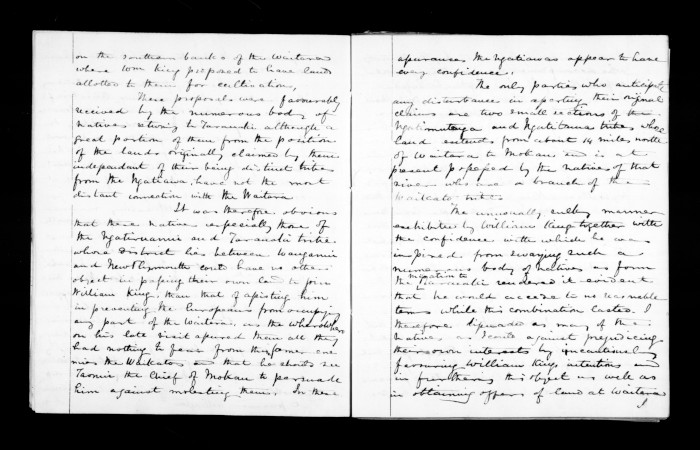 on the southern banks of the Waitara
where Wm King proposed to have land
allotted to them for cultivation,
These proposals were favourably
received by the numerous body of
natives retiring to Taranaki although a
great portion of them from the position
of the lands originally claimed by them
independant of their being distinct tribes
from the Ngatiawa, have not the most
distant connection with the Waitara
It was therefore obvious
that these natives especially those of
the Ngatiruanui and Taranaki tribes
whose District lies between Wanganui
and New Plymouth could have no other
object in passing their own land to join
William King, than that of assisting him
in preventing the Europeans from occupying
any part of the Waitara, as the Wherowhero
on his late visit assured them all they
had nothing to fear from their former ene
mies the Waikatos and that he should see
Taonui, the Chief of Mokau to persuade
him against molesting them. In these
assurances the Ngatiawas appear to have
every confidence.
The only parties who anticipate
any disturbance in asserting their original
claims are two small sections of the
Ngatimutunga and Ngatitama tribes, whose
land extends from about 14 miles north
of Waitara to Mokau and is at
present possessed by the natives of that
river who are a branch of the
Waikato tribe.
The unusually sulky manner
exhibited by William King together with
the confidence with which he was
inspired from swaying such a
numerous body of natives as form
migration to
the Taranaki rendered it evident
that he would accede to no reasonable
terms while this combination lasted. I
therefore dissuaded as many of the
natives as I could against prejudicing
their own interests by unconditionally
favouring William Kings intentions and
in furthering this object as well as
in obtaining offers of land at Waitara
I